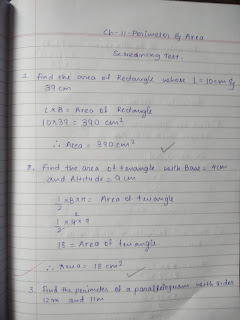 Ch-11-Perimeter & Area
Screening Test.
1. Find the area of Rectangle whose L = 10cm &
39 cm
L×B = Area of Rectangle
10×39 = 390 cm²
∴ Area = 390 cm²
2. Find the area of triangle with Base = 4cm
and Altitude = 9 cm
1/2 ×B×H = Area of triangle
1/2 × 4 × 9
2
18 = Area of triangle
∴ Area = 18 cm²
3. Find the perimeter of a parallelogram with sides
12m and 11m